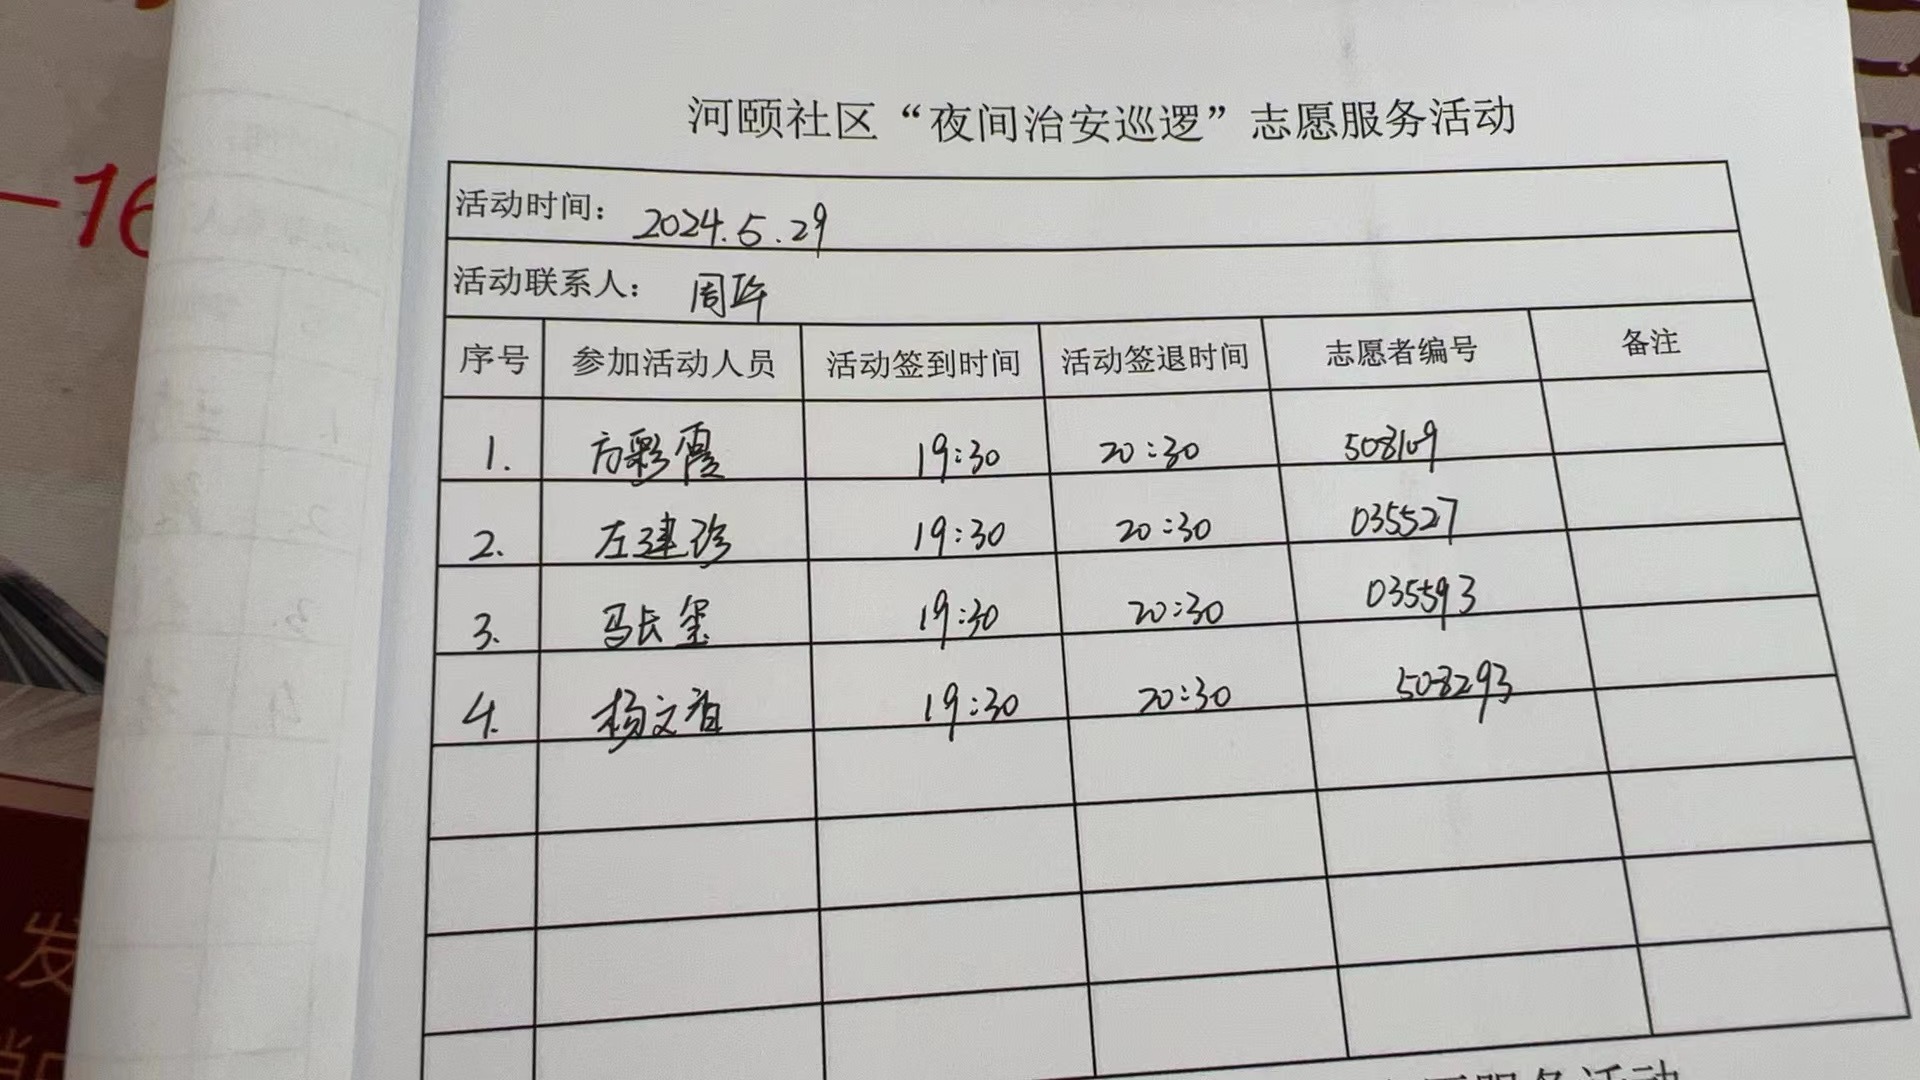 河颐社区“夜间治安巡逻”志愿服务活动
活动时间：2024.5.29
活动联系人：周
序号 参加活动人员 活动签到时间 活动签退时间 志愿者编号 备注
1. 方彩霞 19:30 20:30 508109
2. 左建珍 19:30 20:30 035527
3. 马长玺 19:30 20:30 035593
4. 杨文 19:30 20:30 508293
服务活动
-16
发